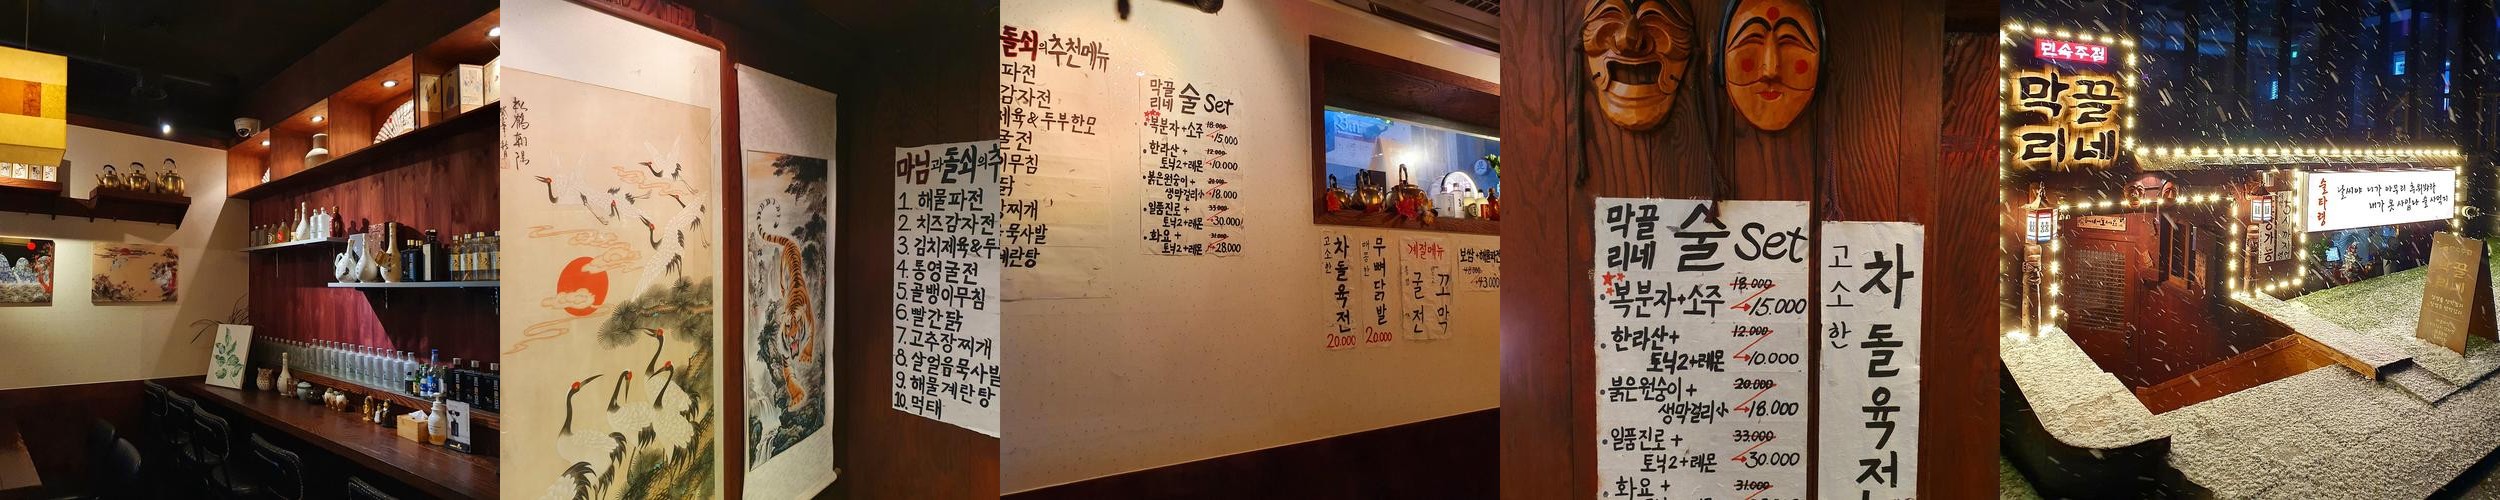 松鶴南陽
마님과돌쇠의추
1. 해물파전
2. 치즈감자전
3. 김치제육&두
4. 통영굴전
5. 골뱅이무침
6. 빨간닭
7. 고추장찌개
8. 살얼음묵사발
9. 해물계란탕
10. 먹태
돌쇠의추천메뉴
파전
감자전
제육&두부한모
굴전
이무침
닭
장찌개
음묵사발
계란탕
막끌
리네 술 Set
복분자+소주 18.000
15.000
한라산+ 12.000
토닉2+레몬 10.000
붉은원숭이+ 20.000
생막걸리 18.000
일품진로+ 33.000
토닉2+레몬 30.000
화요+ 31.000
토닉2+레몬 28.000
고소한
차돌육전
20.000
매콤한
무뼈닭발
20.000
계절메뉴
굴전
꼬막
보쌈+해물파전
43.000
막끌
리네 술 Set
복분자+소주 18.000
15.000
한라산+ 12.000
토닉2+레몬 10.000
붉은원숭이+ 20.000
생막걸리 18.000
일품진로+ 33.000
토닉2+레몬 30.000
화요+ 31.000
고소한
차돌육전
민속주점
막끌
리네
술타령
날씨야 네가 아무리 추워봐라
내가 옷 사입나 술 사먹지